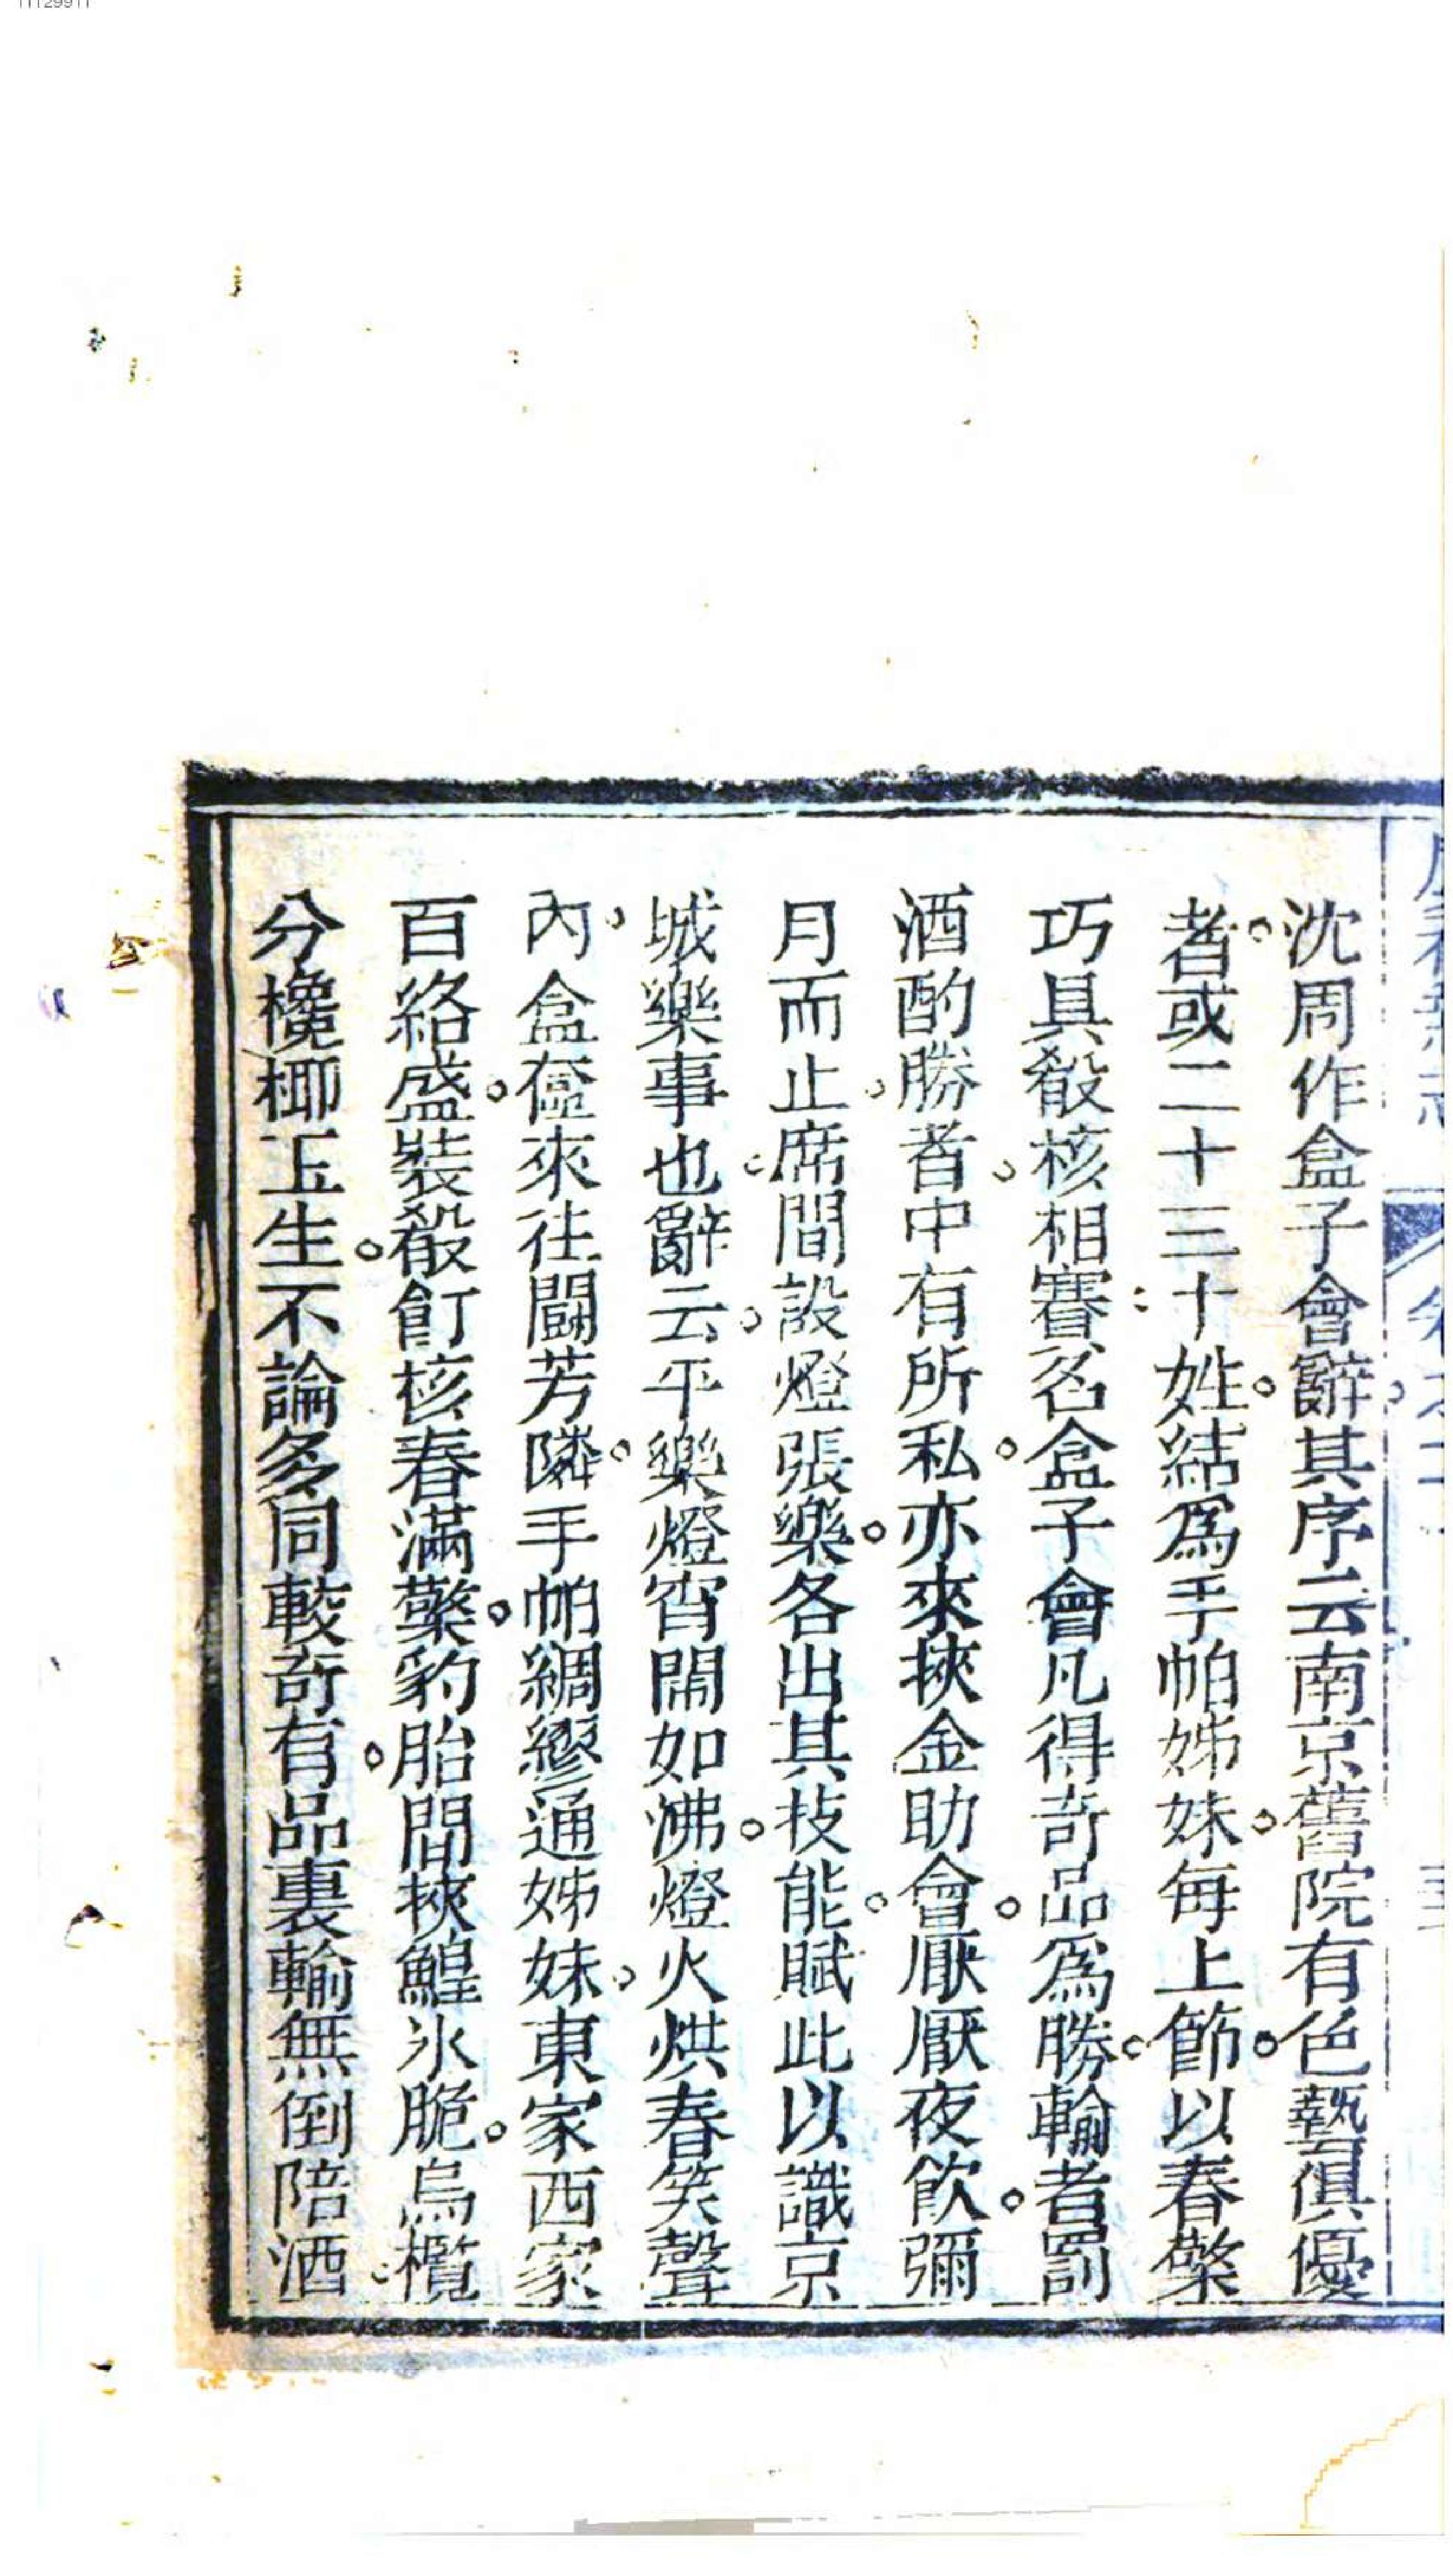 沈周作盒子會辭其序云南京舊院有色藝俱優
者或二十三十姓結爲手帕姊妹每上節以春檠
巧具殽核相賽名盒子會凡得奇品爲勝輸者罰
酒酌勝者中有所私亦來挾金助會厭厭夜飲彌
月而止席間設燈張樂各出其技能賦此以識京
城樂事也辭云平樂燈宵鬧如沸燈火烘春笑聲
內盒奩來往鬪芳隣手帕綢繆通姊妹東家西家
百絡盛裝殽飣核春滿檠豹胎間挾鰉氷脆烏欖
分欃榔玉生不論多同較奇有品裏輸無倒陪酒